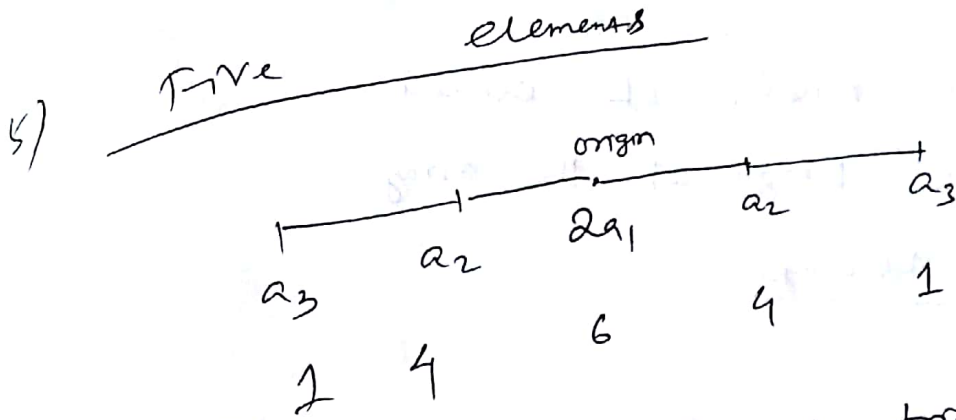 5) Five elements
origin
a3 a2 2a1 a2 a3
1 4 6 4 1